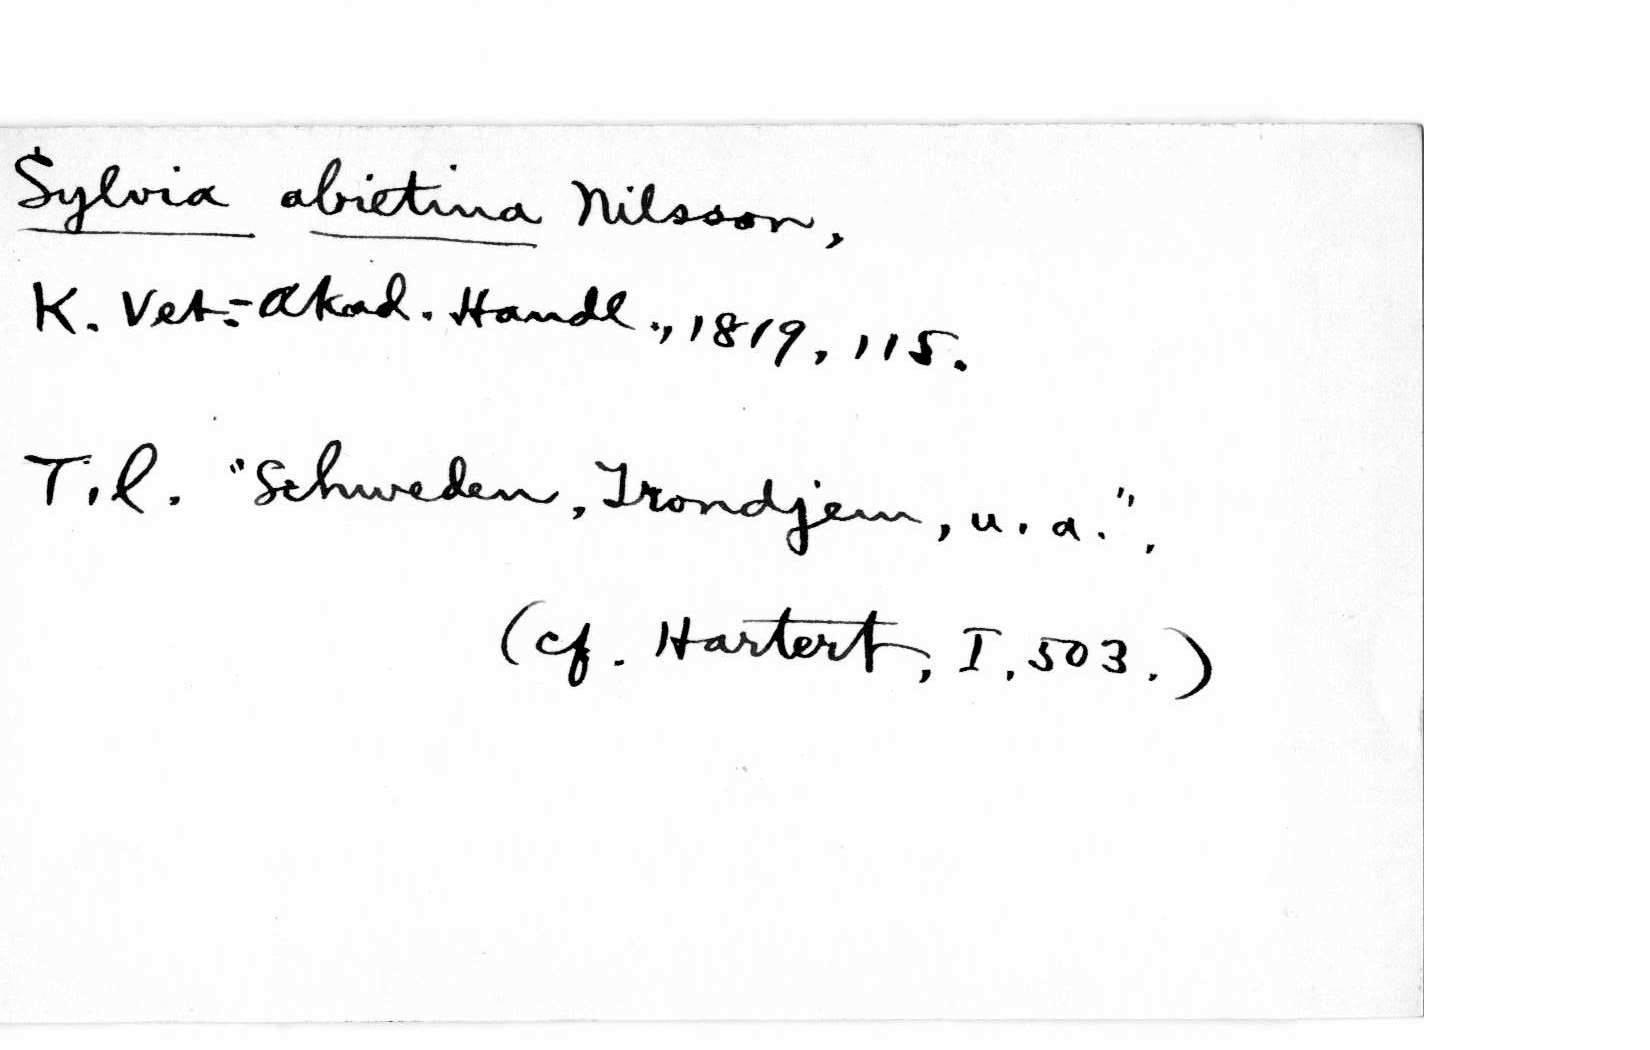 Sylvia abietina Nilsson,
K. Vet.-Akad. Handl., 1819, 115.
T.l. "Schweden, Trondjem, u. a.",
(cf. Hartert, I, 503.)